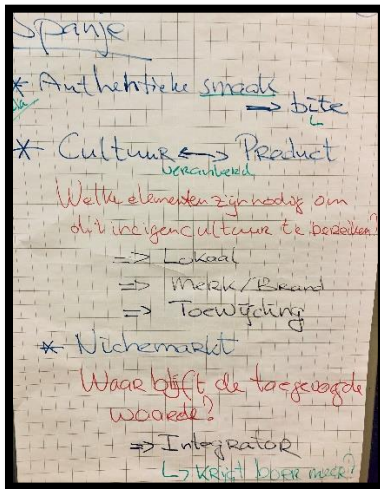 Spanje
* Authentieke smaak
⇒ bite
* Cultuur ↔ Product
verankerd
Welke elementen zijn nodig om
dit in eigen cultuur te bereiken?
⇒ Lokaal
⇒ Merk/Brand
⇒ Toewijding
* Nichemarkt
Waar blijft de toegevoegde
waarde?
⇒ Integrator
↳ krijgt boer meer?